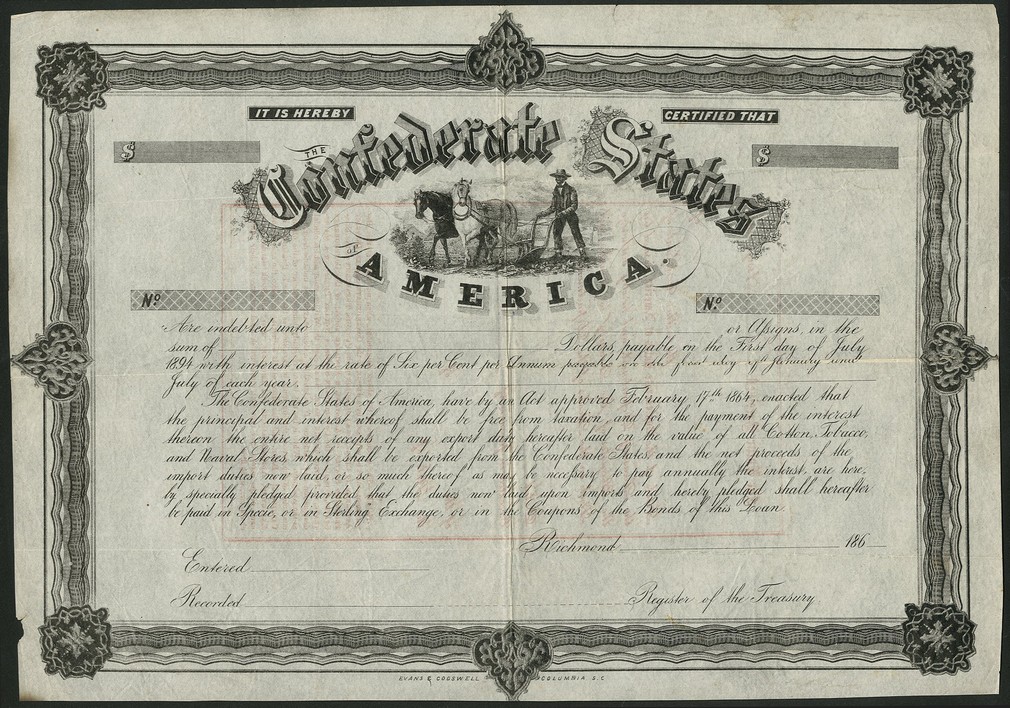 IT IS HEREBY
CERTIFIED THAT
$
$
THE
Confederate States
OF
AMERICA.
No
No.
Are indebted unto or Assigns, in the
sum of Dollars, payable on the First day of July
1894 with interest at the rate of Six per Cent per Annum payable on the first day of January and
July of each year.
The Confederate States of America, have by an Act approved February 17th 1864, enacted that
the principal and interest whereof shall be free from taxation, and for the payment of the interest
thereon the entire net receipts of any export duty hereafter laid on the value of all Cotton, Tobacco,
and Naval Stores, which shall be exported from the Confederate States and the net proceeds of the
import duties now laid, or so much thereof as may be necessary to pay annually the interest, are here,
by specially pledged provided that the duties now laid upon imports and hereby pledged shall hereafter
be paid in Specie, or in Sterling Exchange, or in the Coupons of the Bonds of this Loan.
Richmond 186
Entered
Recorded
Register of the Treasury.
EVANS & COGSWELL COLUMBIA S.C.